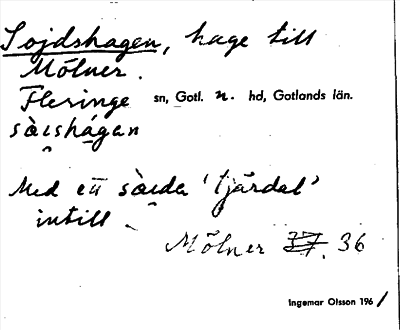 Sojdshagen, hage till
Mölner.
Fleringe sn, Gotl. n. hd, Gotlands län.
sòishágan
Med en sòida 'tjärdal'
intill.
Mölner 37. 36
Ingemar Olsson 196/